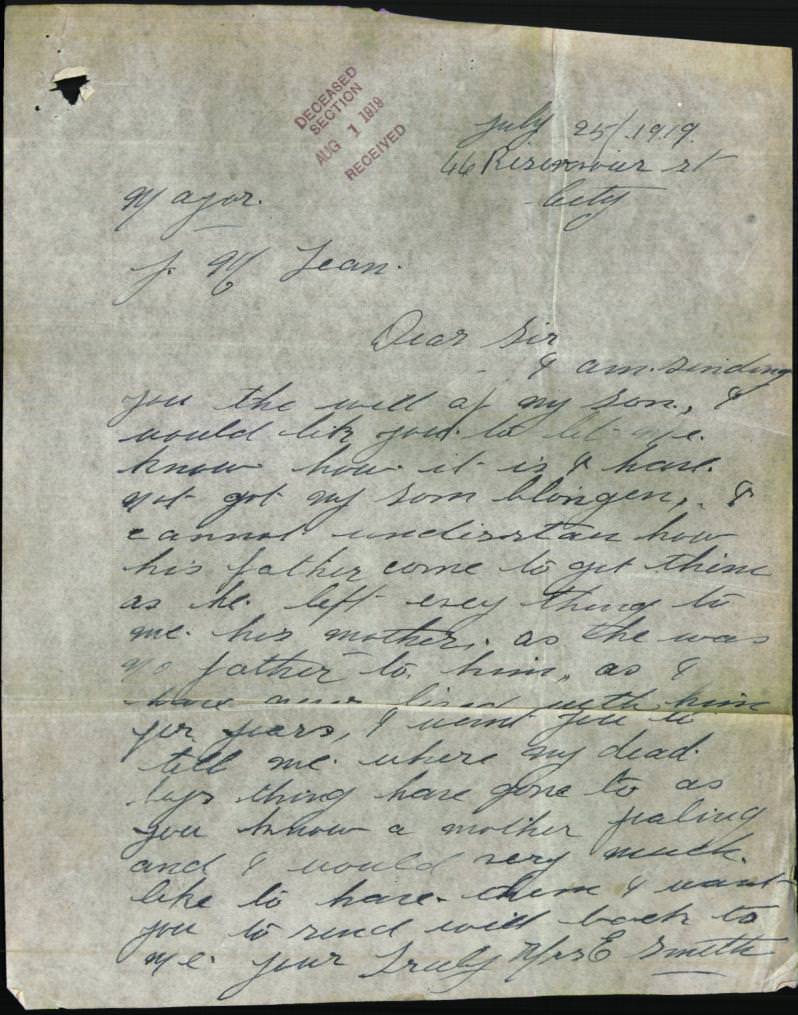 DECEASED
SECTION
AUG 1 1919
RECEIVED
July 25/1919.
46 Riservoier st
City
Major.
J. M Lean.
Dear Sir
I am sending
you the will of my son, I
would lik you to let me.
know how it is I have.
not got my som blongen, I
cannot undirstan how
his father come to get them
as he left evey thing to
me. his mother. as he was
no father to him, as I
have lived with him
for years, I want you to
tell me where my dead.
boys thing have gone to as
you know a mother fealing
and I would very much.
like to have them I want
you to send will back to
me. your Truly Mrs E Smith